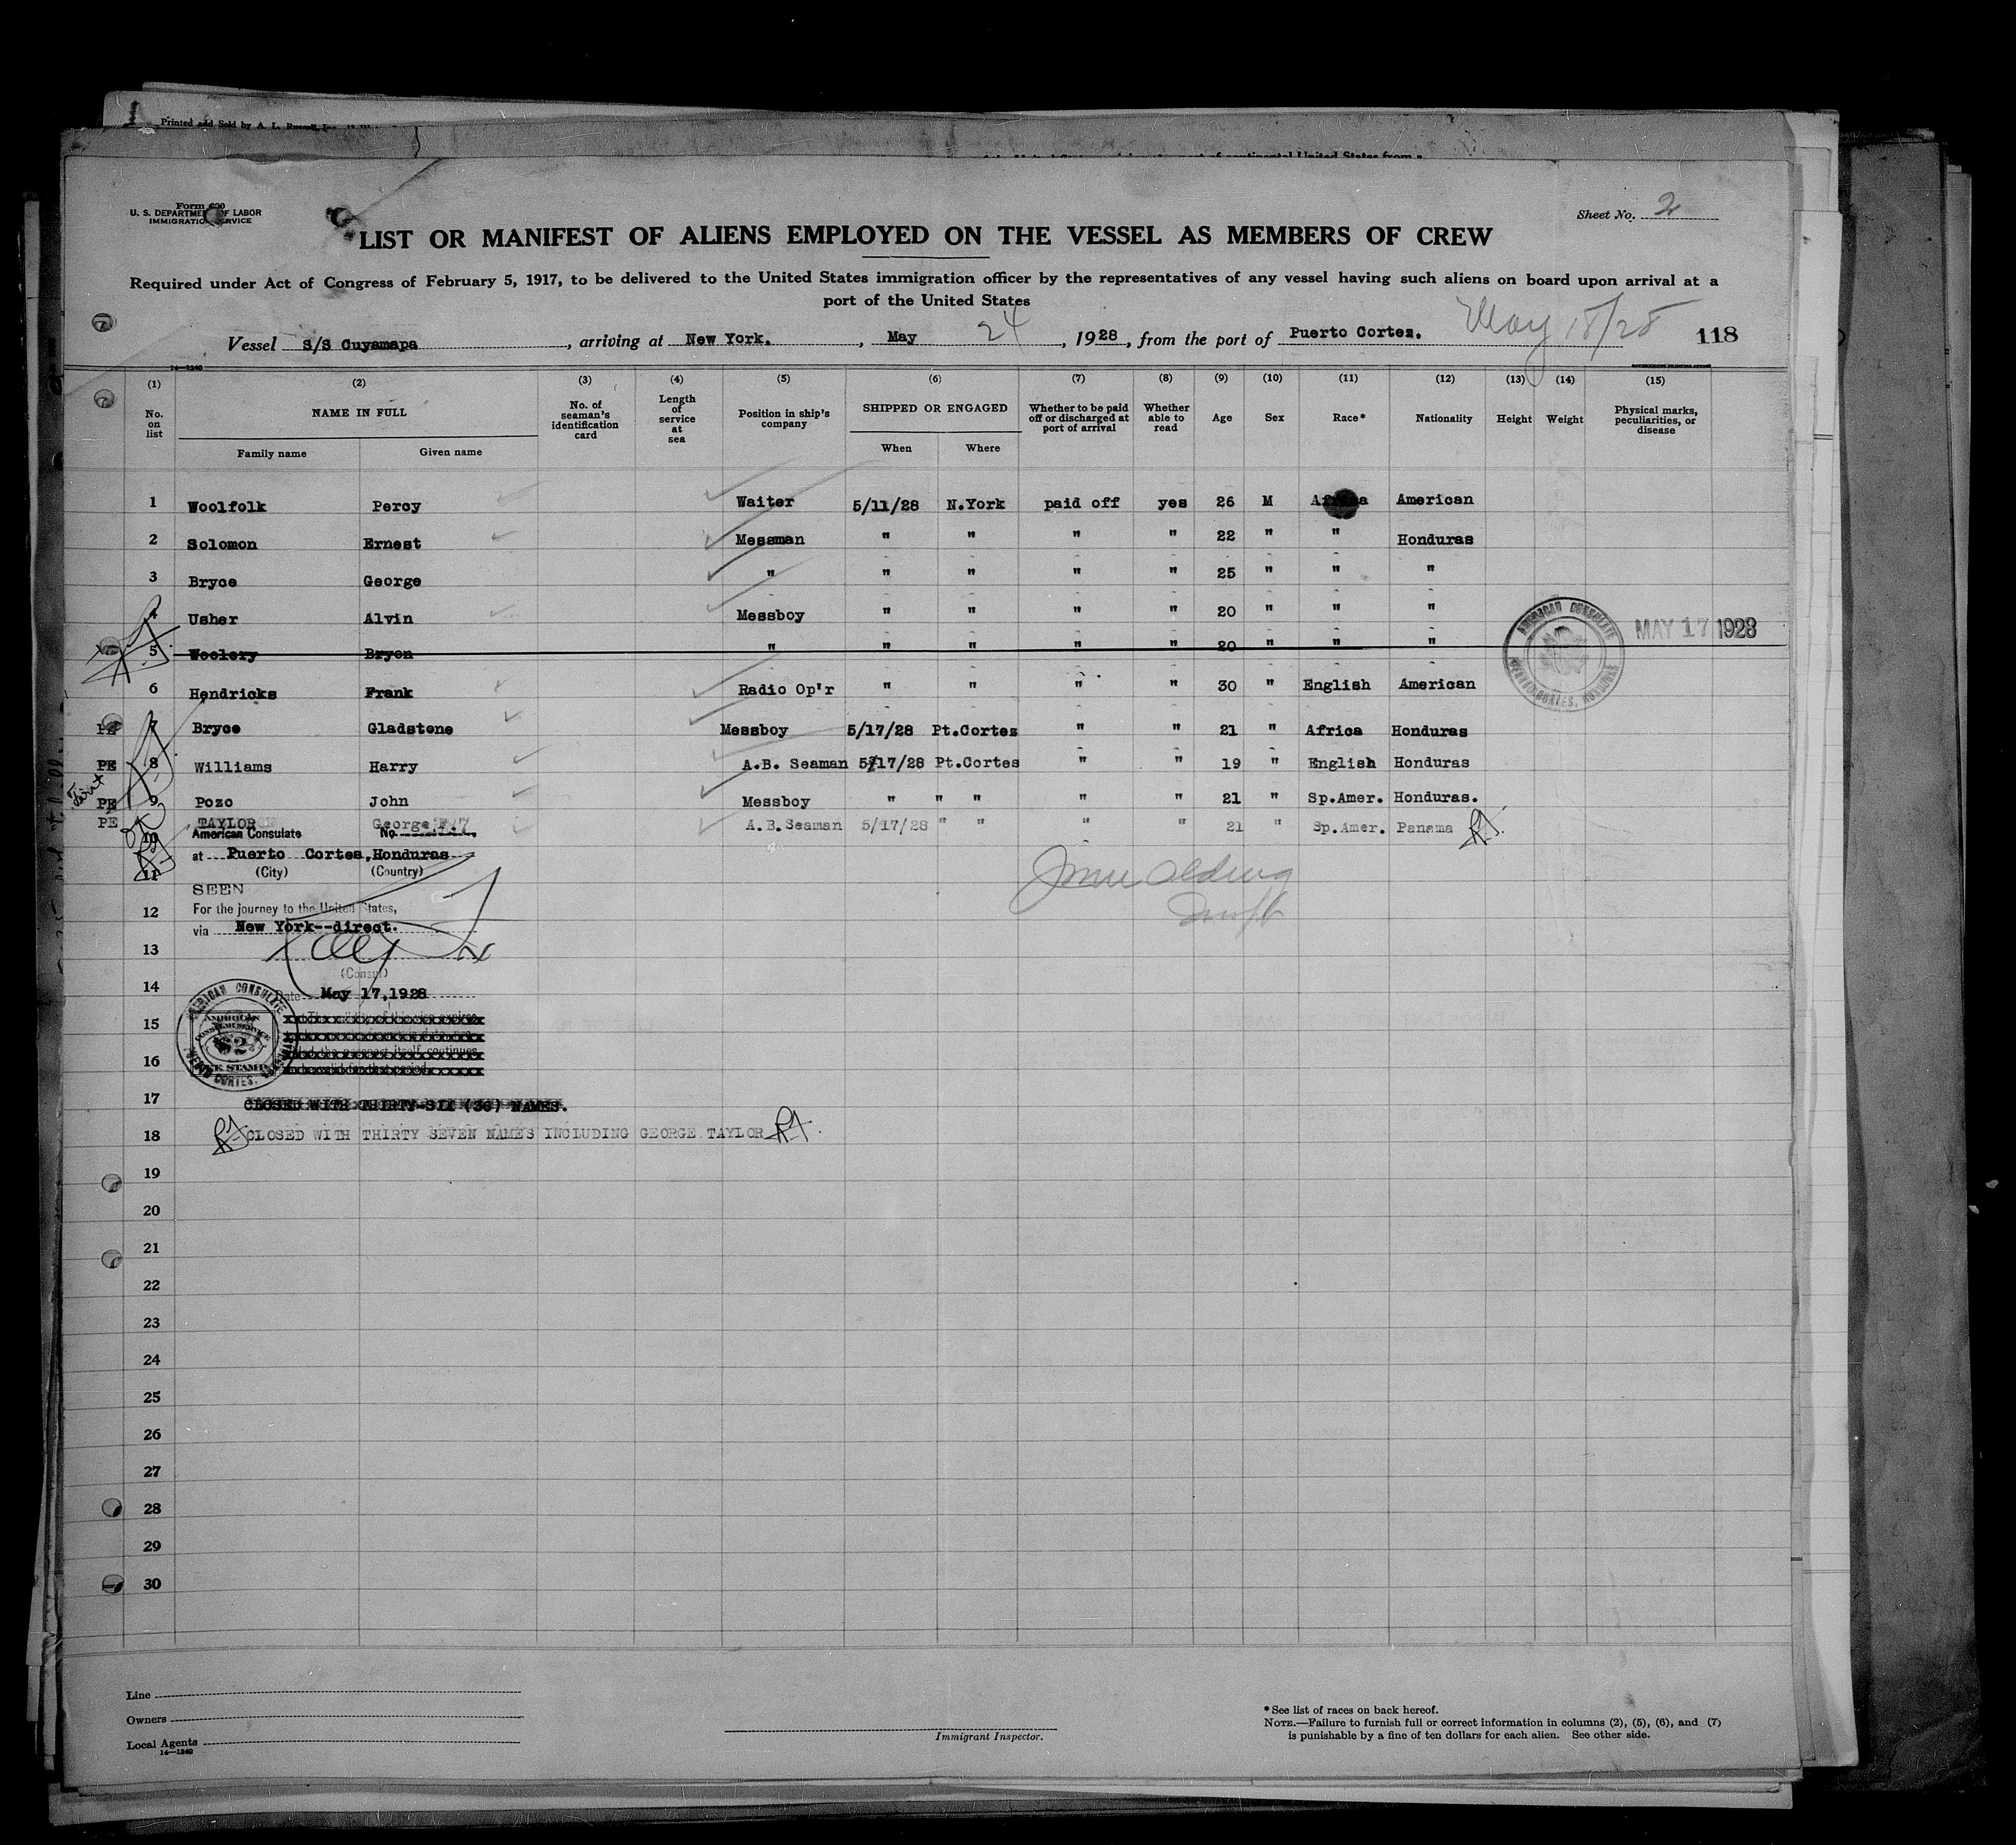 Printed and Sold by A. L. Russell, Inc.
Form 680
U. S. DEPARTMENT OF LABOR
IMMIGRATION SERVICE
Sheet No. 2
LIST OR MANIFEST OF ALIENS EMPLOYED ON THE VESSEL AS MEMBERS OF CREW
Required under Act of Congress of February 5, 1917, to be delivered to the United States immigration officer by the representatives of any vessel having such aliens on board upon arrival at a
port of the United States
Vessel S/S Cuyamapa, arriving at New York, May 24, 1928, from the port of Puerto Cortez. May 18/28 118
14-1240
(1) (2) (3) (4) (5) (6) (7) (8) (9) (10) (11) (12) (13) (14) (15)
No. on list NAME IN FULL No. of seaman's identification card Length of service at sea Position in ship's company SHIPPED OR ENGAGED Whether to be paid off or discharged at port of arrival Whether able to read Age Sex Race* Nationality Height Weight Physical marks, peculiarities, or disease
Family name Given name When Where
1 Woolfolk Percy Waiter 5/11/28 N.York paid off yes 26 M Africa American
2 Solomon Ernest Messman " " " " 22 " " Honduras
3 Bryce George " " " " " 25 " " "
4 Usher Alvin Messboy " " " " 20 " " "
MAY 17 1928
AMERICAN CONSULATE
PUERTO CORTES, HONDURAS
5 Woolery Bryon " " " " " 20 " " "
6 Hendricks Frank Radio Op'r " " " " 30 " English American
PE 7 Bryce Gladstone Messboy 5/17/28 Pt.Cortez " " 21 " Africa Honduras
PE 8 Williams Harry A.B. Seaman 5/17/28 Pt.Cortes " " 19 " English Honduras
PE 9 Pozo John Messboy " " " " " 21 " Sp.Amer. Honduras.
PE 10 TAYLOR George A.B.Seaman 5/17/28 " " " " 21 " Sp.Amer. Panama
American Consulate No.
at Puerto Cortes, Honduras
11 (City) (Country)
SEEN
12 For the journey to the United States,
via New York--direct.
13
(Consul)
14 Date May 17,1928
15
16
AMERICAN CONSULATE
AMERICAN CONSULAR SERVICE
$2
FEE STAMP
PUERTO CORTES, HONDURAS
17 CLOSED WITH THIRTY-SIX (36) NAMES.
18 CLOSED WITH THIRTY SEVEN NAMES INCLUDING GEORGE TAYLOR
19
20
21
22
23
24
25
26
27
28
29
30
Line
Owners
Local Agents
14-1240
Immigrant Inspector.
* See list of races on back hereof.
NOTE.—Failure to furnish full or correct information in columns (2), (5), (6), and (7)
is punishable by a fine of ten dollars for each alien. See other side.